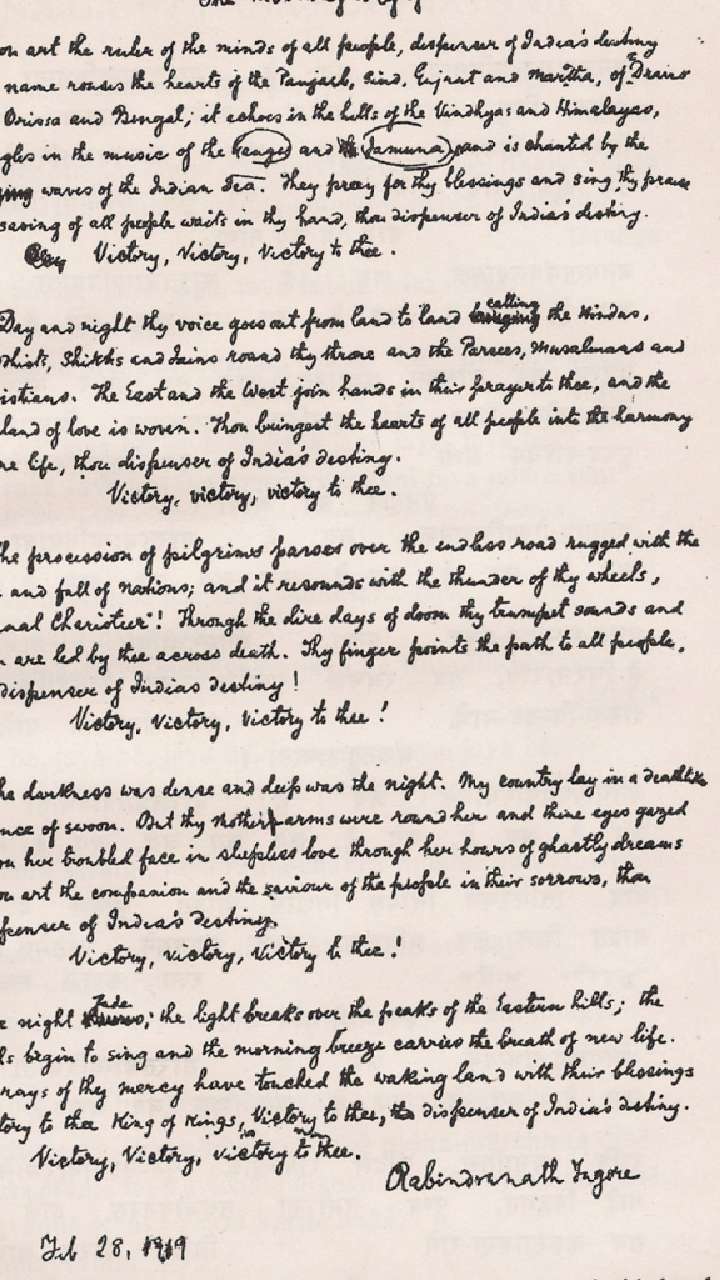 The Morning Song of
ou art the ruler of the minds of all people, dispenser of India's destiny
name rouses the hearts of the Panjaub, Sind, Gujrat and Maratha, of Dravid
Orissa and Bengal; it echoes in the hills of the Vindhyas and Himalayas,
gles in the music of the Ganges and Jamuna, and is chanted by the
waves of the Indian Sea. They pray for thy blessings and sing thy praise
saving of all people waits in thy hand, thou dispenser of India's destiny.
Victory, Victory, Victory to thee.
Day and night thy voice goes out from land to land calling the Hindus,
ddhists, Shikhs and Jains round thy throne and the Parsees, Musalmans and
istians. The East and the West join hands in their prayer to thee, and the
land of love is woven. Thou bringest the hearts of all people into the harmony
ne life, thou dispenser of India's destiny.
Victory, victory, victory to thee.
he procession of pilgrims passes over the endless road rugged with the
and fall of nations; and it resounds with the thunder of thy wheels,
nal Charioteer! Through the dire days of doom thy trumpet sounds and
n are led by thee across death. Thy finger points the path to all people,
dispenser of Indias destiny!
Victory, victory, victory to thee!
he darkness was dense and deep was the night. My country lay in a deathlike
nce of swoon. But thy Mother arms were round her and thine eyes gazed
on her troubled face in sleepless love through her hours of ghastly dreams
ou art the companion and the saviour of the people in their sorrows, thou
penser of India's destiny.
Victory, victory, victory to thee!
e night fade; the light breaks over the peaks of the Eastern hills; the
ds begin to sing and the morning breeze carries the breath of new life.
rays of thy mercy have touched the waking land with their blessings
tory to thee King of Kings, Victory to thee, dispenser of India's destiny.
Victory, Victory, victory to thee.
Rabindranath Tagore
Feb 28, 1919